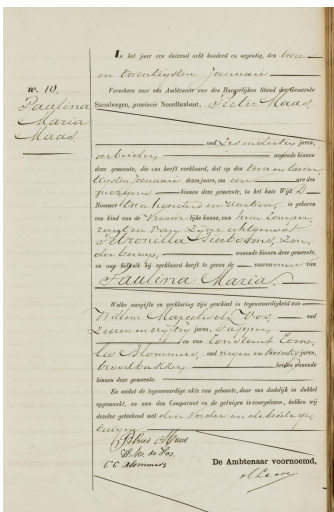 N°. 10.
Paulina
Maria
Maas
In het jaar een duizend acht honderd en negentig, den twee
en twintigsten Januarij
Verscheen voor ons Ambtenaar van den Burgerlijken Stand der Gemeente
Steenbergen, provincie Noordbrabant, Pieter Maas,
oud zes en dertig jaren,
arbeider wonende binnen
deze gemeente, die aan heeft verklaard, dat op den twee en twin
tigsten Januarij dezes jaars, om een ure des
binnen deze gemeente, in het huis Wijk D
Nommer twee honderd en veertien, is geboren
een kind van de Vrouwelijke kunne, van hem Compa
rant en van zijne echtgenoote
Petronella zon
der beroep, wonende binnen deze gemeente,
en nog heeft hij verklaard heeft te geven de voornamen van
Paulina Maria.
Welke aangifte en verklaring zijn geschied in tegenwoordigheid van
Willem Marcelis de Vos, oud
jaren,
en van Constant Corne
lis Blommers, oud negen en twintig jaren,
broodbakker, beiden wonende
binnen deze gemeente.
En nadat de tegenwoordige akte van geboorte, daar van dadelijk in dubbel
opgemaakt, en aan den Comparant en de getuigen is voorgelezen, hebben wij
dezelve geteekend met den Vader en de beide ge
tuigen
P Maas
W. M. de Vos.
C C Blommers
De Ambtenaar voornoemd,